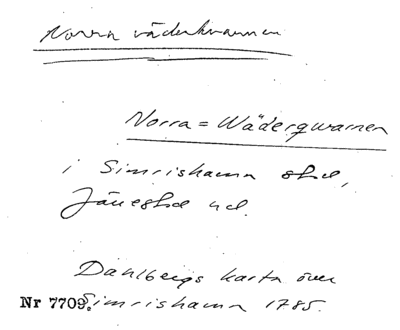 Norra väderkvarnen
Norra = Wäderqwarnen
i Simrishamn stad,
Järrestad hd.
Dahlbergs karta över
Nr 7709. Simrishamn 1785.